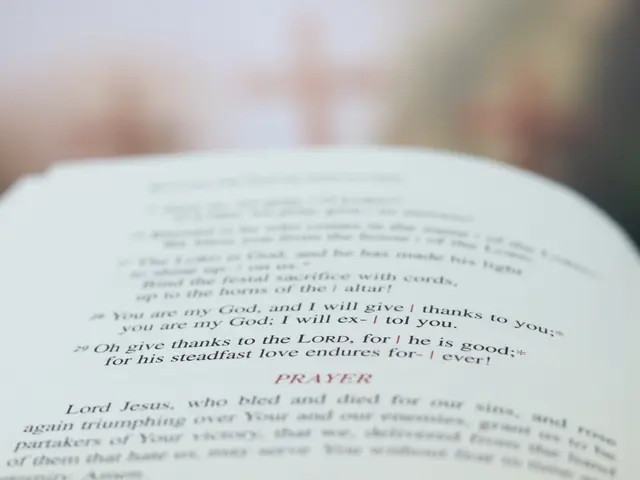 26 Blessed is he who comes in the name of the LORD!
we bless you from the house of the LORD.
The LORD is God, and he has made his light
to shine up- | on us.*
Bind the festal sacrifice with cords,
up to the horns of the | altar!
28 You are my God, and I will give | thanks to you;*
you are my God; I will ex- | tol you.
29 Oh give thanks to the LORD, for | he is good;*
for his steadfast love endures for- | ever!
PRAYER
Lord Jesus, who bled and died for our sins, and rose
again triumphing over Your and our enemies, grant us to be
partakers of Your victory, that we, delivered from the hand
of them that hate us, may serve You without fear in time and
eternity. Amen.